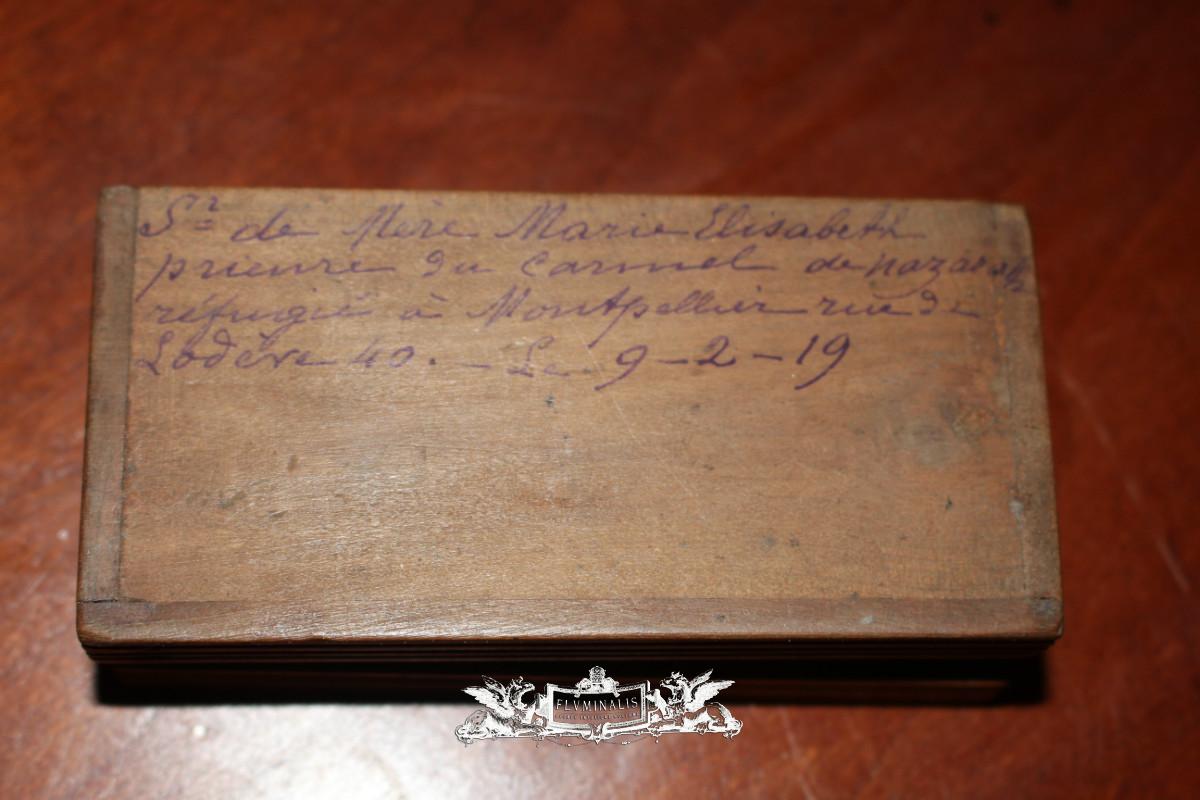 Sr de Mère Marie Elisabeth
prieure du Carmel de nazareth
réfugié à Montpellier rue de
Lodève 40. — Le 9-2-19
FLVMINALIS